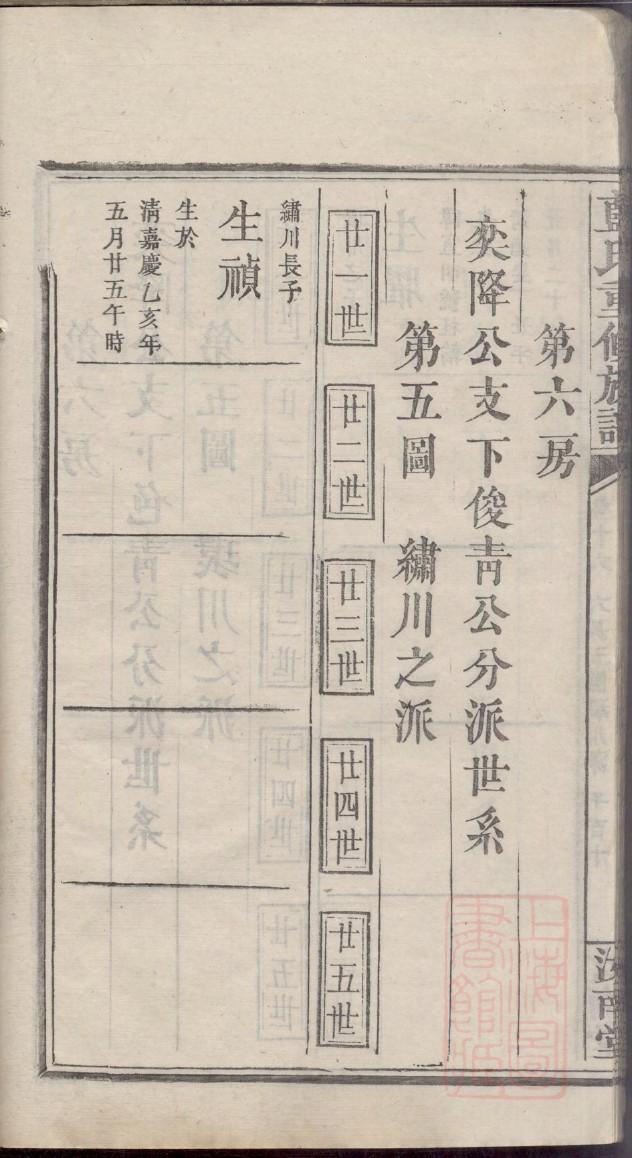 藍氏重修族譜
汝南堂
第六房
奕降公支下俊靑公分派世系
第五圖 繡川之派
廿一世
廿二世
廿三世
廿四世
廿五世
繡川長子
生禎
生於
淸嘉慶乙亥年
五月廿五午時
上海圖
書館藏